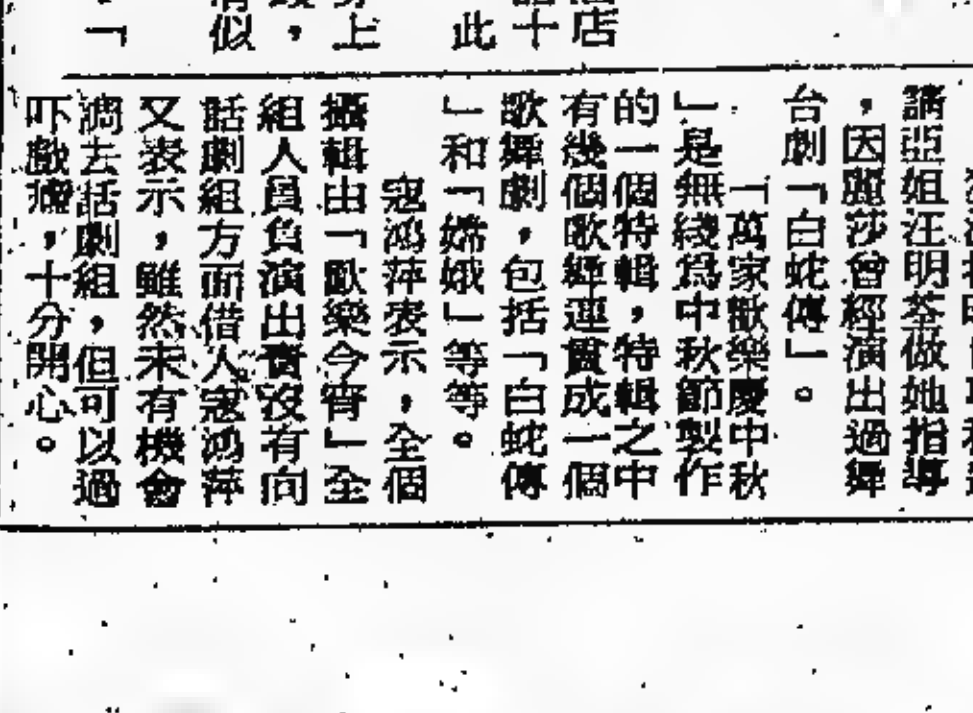 上
，
似
「
店
十
此
請亞姐汪明荃做她指導
，因麗莎曾經演出過舞
台劇「白蛇傳」。
「萬家歡樂慶中秋
」是無綫爲中秋節製作
的一個特輯，特輯之中
有幾個歌舞連貫成一個
歌舞劇，包括「白蛇傳
」和「嫦娥」等等。
寇鴻萍表示，全個
攝輯由「歡樂今宵」全
組人員負演出責沒有向
話劇組方面借人寇鴻萍
又表示，雖然未有機會
調去話劇組，但可以過
吓戲癮，十分開心。